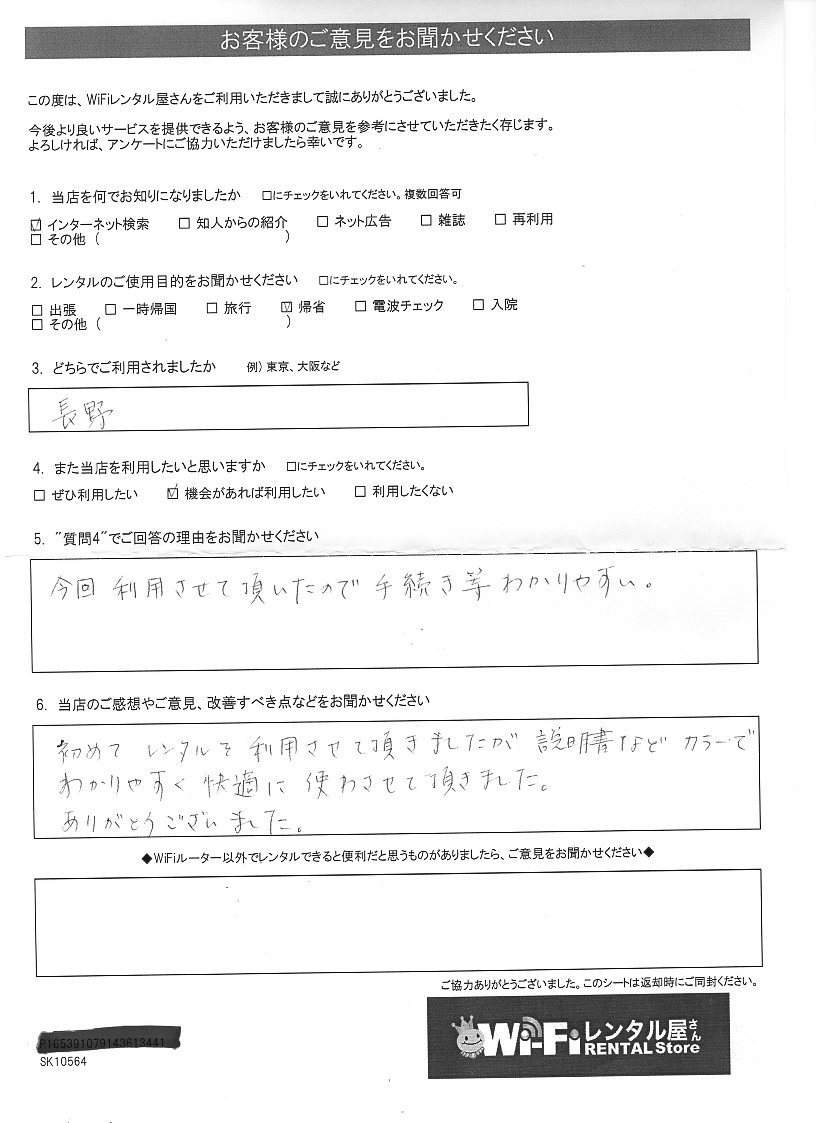 お客様のご意見をお聞かせください
この度は、WiFiレンタル屋さんをご利用いただきまして誠にありがとうございました。
今後より良いサービスを提供できるよう、お客様のご意見を参考にさせていただきたく存じます。
よろしければ、アンケートにご協力いただけましたら幸いです。
1. 当店を何でお知りになりましたか □にチェックをいれてください。複数回答可
☑ インターネット検索 □ 知人からの紹介 □ ネット広告 □ 雑誌 □ 再利用
□ その他 ( )
2. レンタルのご使用目的をお聞かせください □にチェックをいれてください。
□ 出張 □ 一時帰国 □ 旅行 ☑ 帰省 □ 電波チェック □ 入院
□ その他 ( )
3. どちらでご利用されましたか 例)東京、大阪など
長野
4. また当店を利用したいと思いますか □にチェックをいれてください。
□ ぜひ利用したい ☑ 機会があれば利用したい □ 利用したくない
5. "質問4"でご回答の理由をお聞かせください
今回 利用させて頂いたので 手続き等わかりやすい。
6. 当店のご感想やご意見、改善すべき点などをお聞かせください
初めて レンタルを 利用させて頂きましたが 説明書など カラーで
わかりやすく 快適に 使わさせて頂きました。
ありがとうございました。
◆WiFiルーター以外でレンタルできると便利だと思うものがありましたら、ご意見をお聞かせください◆
ご協力ありがとうございました。このシートは返却時にご同封ください。
Wi-Fiレンタル屋さん
RENTAL Store
P165391079143613441
SK10564